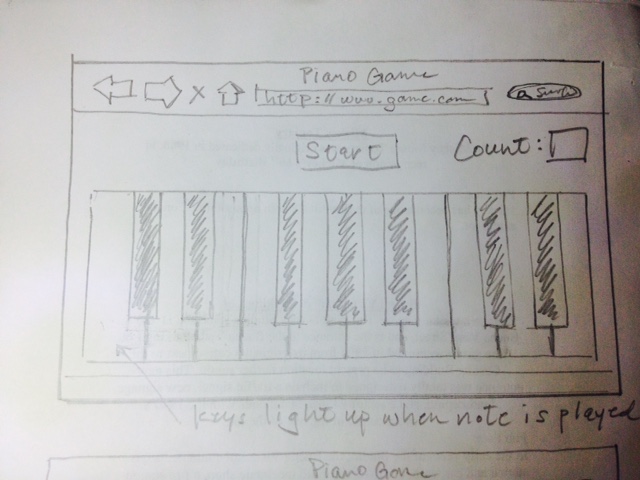 Piano Game
x
http://www.game.com
Start
Count:
keys light up when note is played
Piano Game